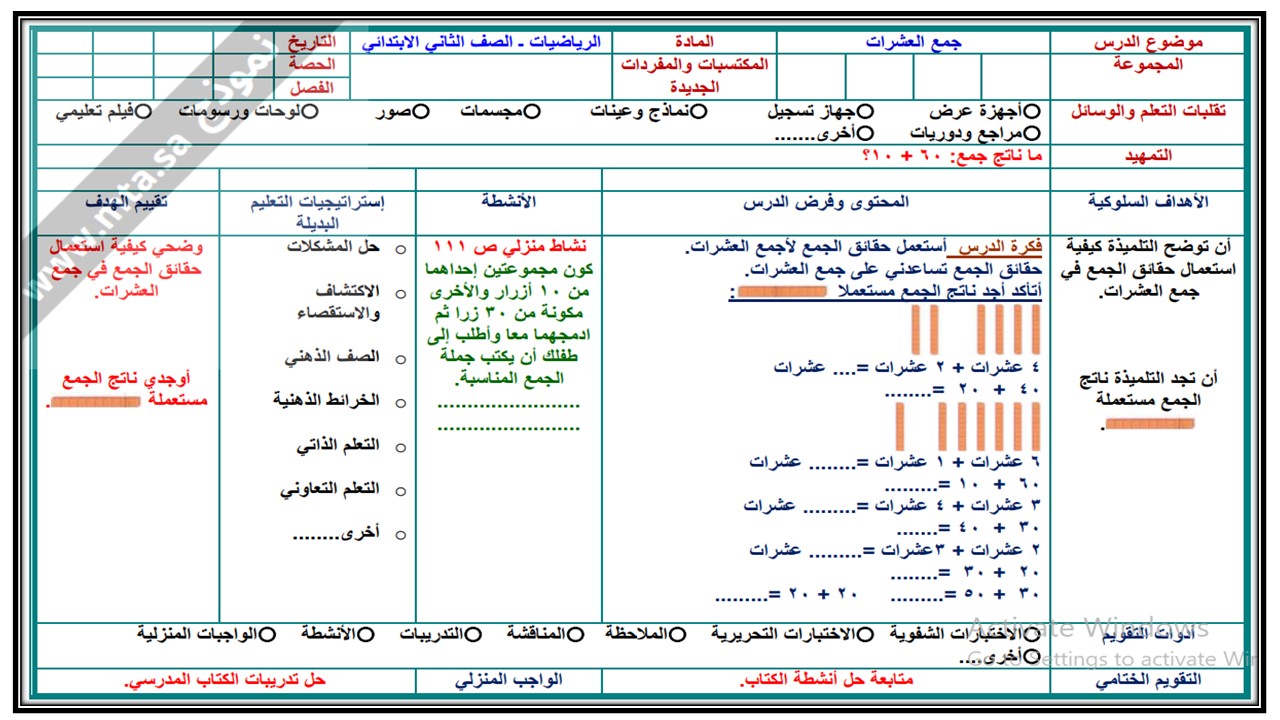 موضوع الدرس
جمع العشرات
المادة
الرياضيات ـ الصف الثاني الابتدائي
التاريخ
المجموعة
المكتسبات والمفردات الجديدة
الحصة
الفصل
تقليات التعلم والوسائل
أجهزة عرض
جهاز تسجيل
نماذج وعينات
مجسمات
صور
لوحات ورسومات
فيلم تعليمي
مراجع ودوريات
أخرى.......
التمهيد
ما ناتج جمع: ٦٠ + ١٠؟
الأهداف السلوكية
المحتوى وفرض الدرس
الأنشطة
إستراتيجيات التعليم
البديلة
تقييم الهدف
أن توضح التلميذة كيفية
استعمال حقائق الجمع في
جمع العشرات.
أن تجد التلميذة ناتج
الجمع مستعملة
.
فكرة الدرس أستعمل حقائق الجمع لأجمع العشرات.
حقائق الجمع تساعدني على جمع العشرات.
أتأكد أجد ناتج الجمع مستعملا :
٤ عشرات + ٢ عشرات =.... عشرات
٤٠ + ٢٠ =........
٦ عشرات + ١ عشرات =........ عشرات
٦٠ + ١٠ =.........
٣ عشرات + ٤ عشرات =......... عشرات
٣٠ + ٤٠ =.......
٢ عشرات + ٣عشرات =......... عشرات
٢٠ + ٣٠ =........
٣٠ + ٥٠ =......... ٢٠ + ٢٠ =.........
نشاط منزلي ص ١١١
كون مجموعتين إحداهما
من ١٠ أزرار والأخرى
مكونة من ٣٠ زرا ثم
ادمجهما معا وأطلب إلى
طفلك أن يكتب جملة
الجمع المناسبة.
........................
........................
حل المشكلات
الاكتشاف
والاستقصاء
الصف الذهني
الخرائط الذهنية
التعلم الذاتي
التعلم التعاوني
أخرى........
وضحي كيفية استعمال
حقائق الجمع في جمع
العشرات.
أوجدي ناتج الجمع
مستعملة .
أدوات التقويم
الاختبارات الشفوية
الاختبارات التحريرية
الملاحظة
المناقشة
التدريبات
الأنشطة
الواجبات المنزلية
أخرى....
التقويم الختامي
متابعة حل أنشطة الكتاب.
الواجب المنزلي
حل تدريبات الكتاب المدرسي.
نموذج www.mta.sa
Activate Windows
Go to Settings to activate Wi